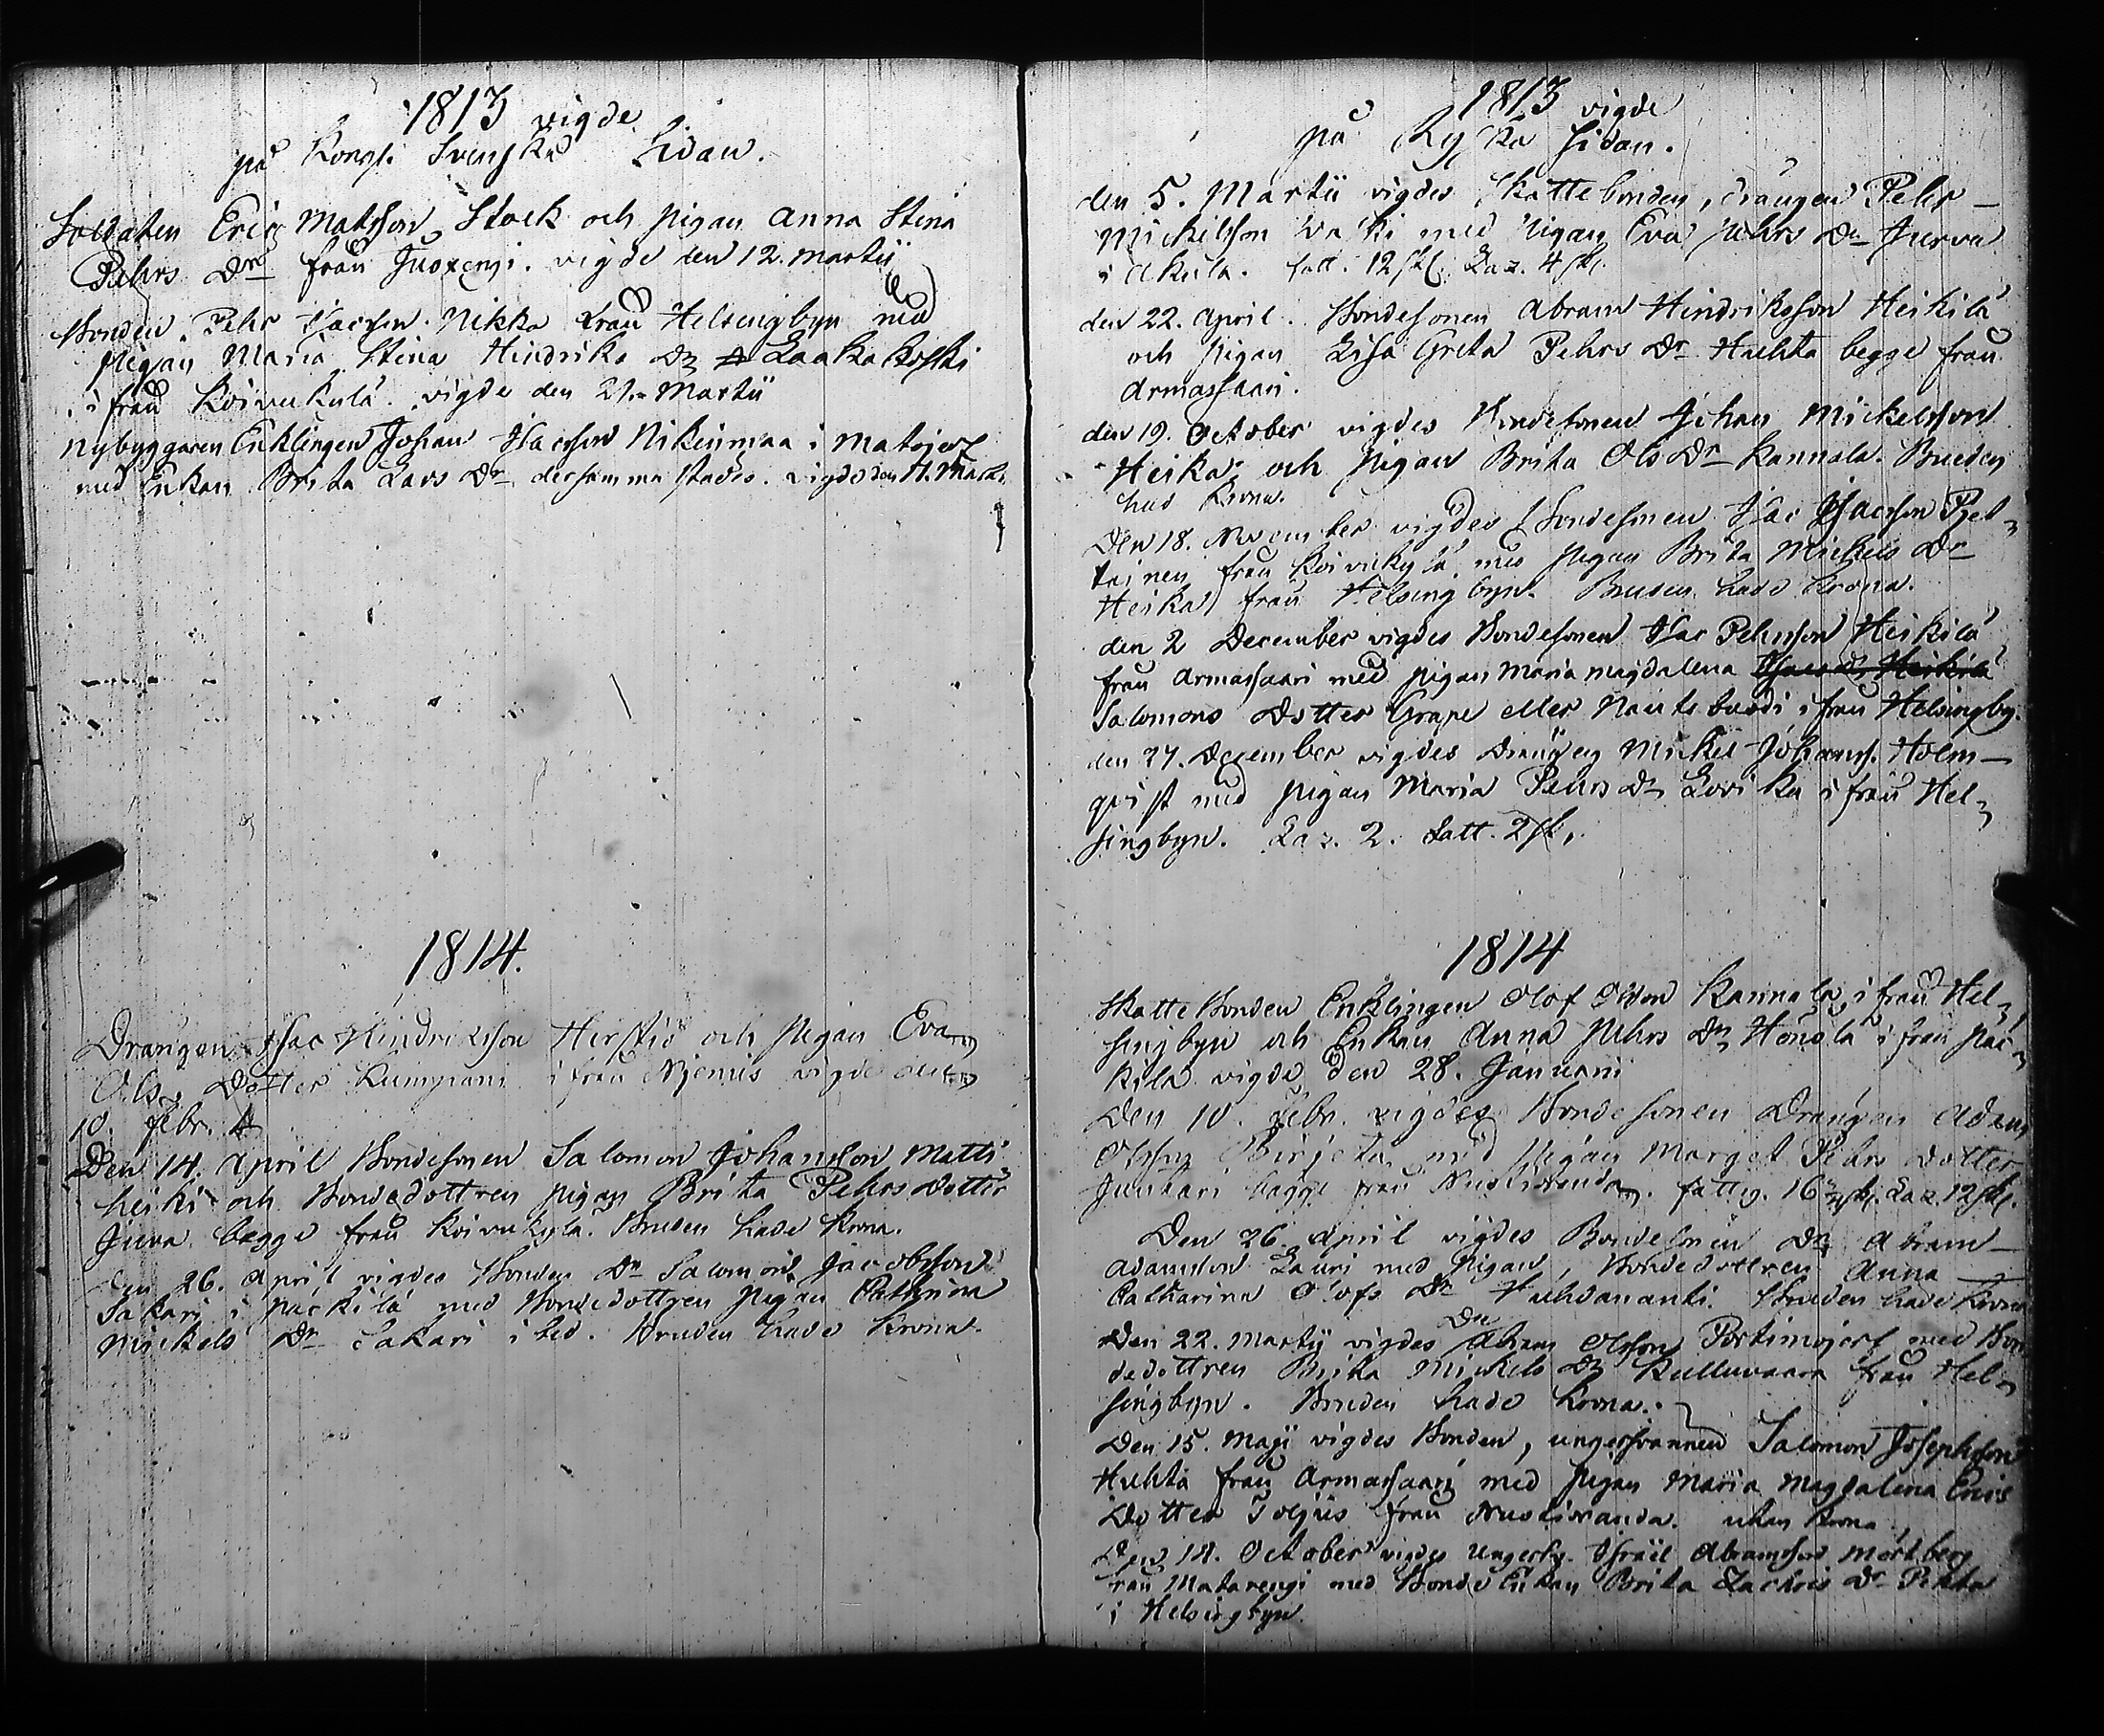 1813 vigde
på Kongl. Svenska Sidan.
Soldaten Eric Matsson Stock och pigan Anna Stina
Pehrs Dr från Juoxengi. vigde den 12. Martii
Bonden Pehr Isacson Nikka från Helsingbyn med
Pigan Maria Stina Hindriks Dr Laakakoski
ifrån Koivukulä. vigde den 21. Martii
Nybyggaren Enklingen Johan Isacsson Nikinmaa i Matojerf
med Enkan Brita Lars Dr dersammastädes. vigde den
1814.
Drängen Isac Hindricsson Herstiö och Pigan Eva
Ols Dotter Kumpuni ifrån Njemis vigde den
10. Febr.
Den 14. April Bondesonen Salomon Johansson Matti
heiki och Bondedottren pigan Brita Pehrs Dotter
Juva begge från Koivukylä. Bruden hade Krona.
Den 26. April vigdes Bonden Dr Salomon Jacobsson
Sakari i Päckilä med Bondedottren Pigan Cathrina
Mickels Dr Sakari ibid. Bruden hade Krona.
1813 vigde
på Ryska sidan.
den 5. Martii vigdes Skattebonden, drängen Pehr
Mickelsson med Pigan Eva Pehrs Dr Jurva
i Akula. fatt. 12 sk. Laz. 4 sk.
den 22. April. Bondesonen Abram Hindriksson Heikilä
och pigan Lisa Greta Pehrs Dr Huhta begge från
Armassaari.
den 19. October vigdes Bondesonen Johan Mickelsson
Heika och pigan Brita Ols Dr Kannala. Bruden
had Krona.
Den 18. November vigdes Bondesonen Isac Isacsson Pel
tainen från Koivukylä med pigan Brita Mickels Dr
Heika från Helsingbyn. Bruden hade Krona.
den 2 December vigdes Bondesonen Isac Pehrsson Heikilä
från Armassaari med pigan Maria Magdalena
Salomons Dotter Grape eller ifrån Helsingby.
den 27. December vigdes Drängen Mickel Johanss. Holm
qvist med pigan Maria Pehrs Dr Lovika ifrån Hel
singbyn. Laz. 2. Fatt. 2 sk.
1814
Skatte Bonden Enklingen Olof Olsson Kannala ifrån Hel
singbyn och Enkan Anna Pehrs Dr ifrån Päc
kilä vigde den 28. Januarii
Den 10. Febr. vigdes Bondesonen Drängen Adam
Olsson med Pigan Marget Pehrs dotter
Junkari begge från Kustiranda. fattig. 16 sk. Laz. 12 sk.
Den 26. April vigdes Bondesonen Dr Abram
Adamsson Lauri med Pigan, Bondedottren Anna
Catharina Olofs Dr Vuhdananti. Bruden hade Krona
Dr
Den 22. Martii vigdes Abram Olsson Portimojerf med Bon
dedottren Brita Mickels Dr Kulluvaara från Hel
singbyn. Bruden hade Krona.
Den 15. Maji vigdes Bonden, ungersvennen Salomon Josephsson
Huhta från Armassaari med pigan Maria Magdalena Erics
Dotter Toljus från Kustiranda. utan Krona
Den 14. October vigdes Ungersv. Israël Abramsson Mörtberg
från Matarengi med Bonde Enkan Brita Zachris Dr
i Helsingbyn.